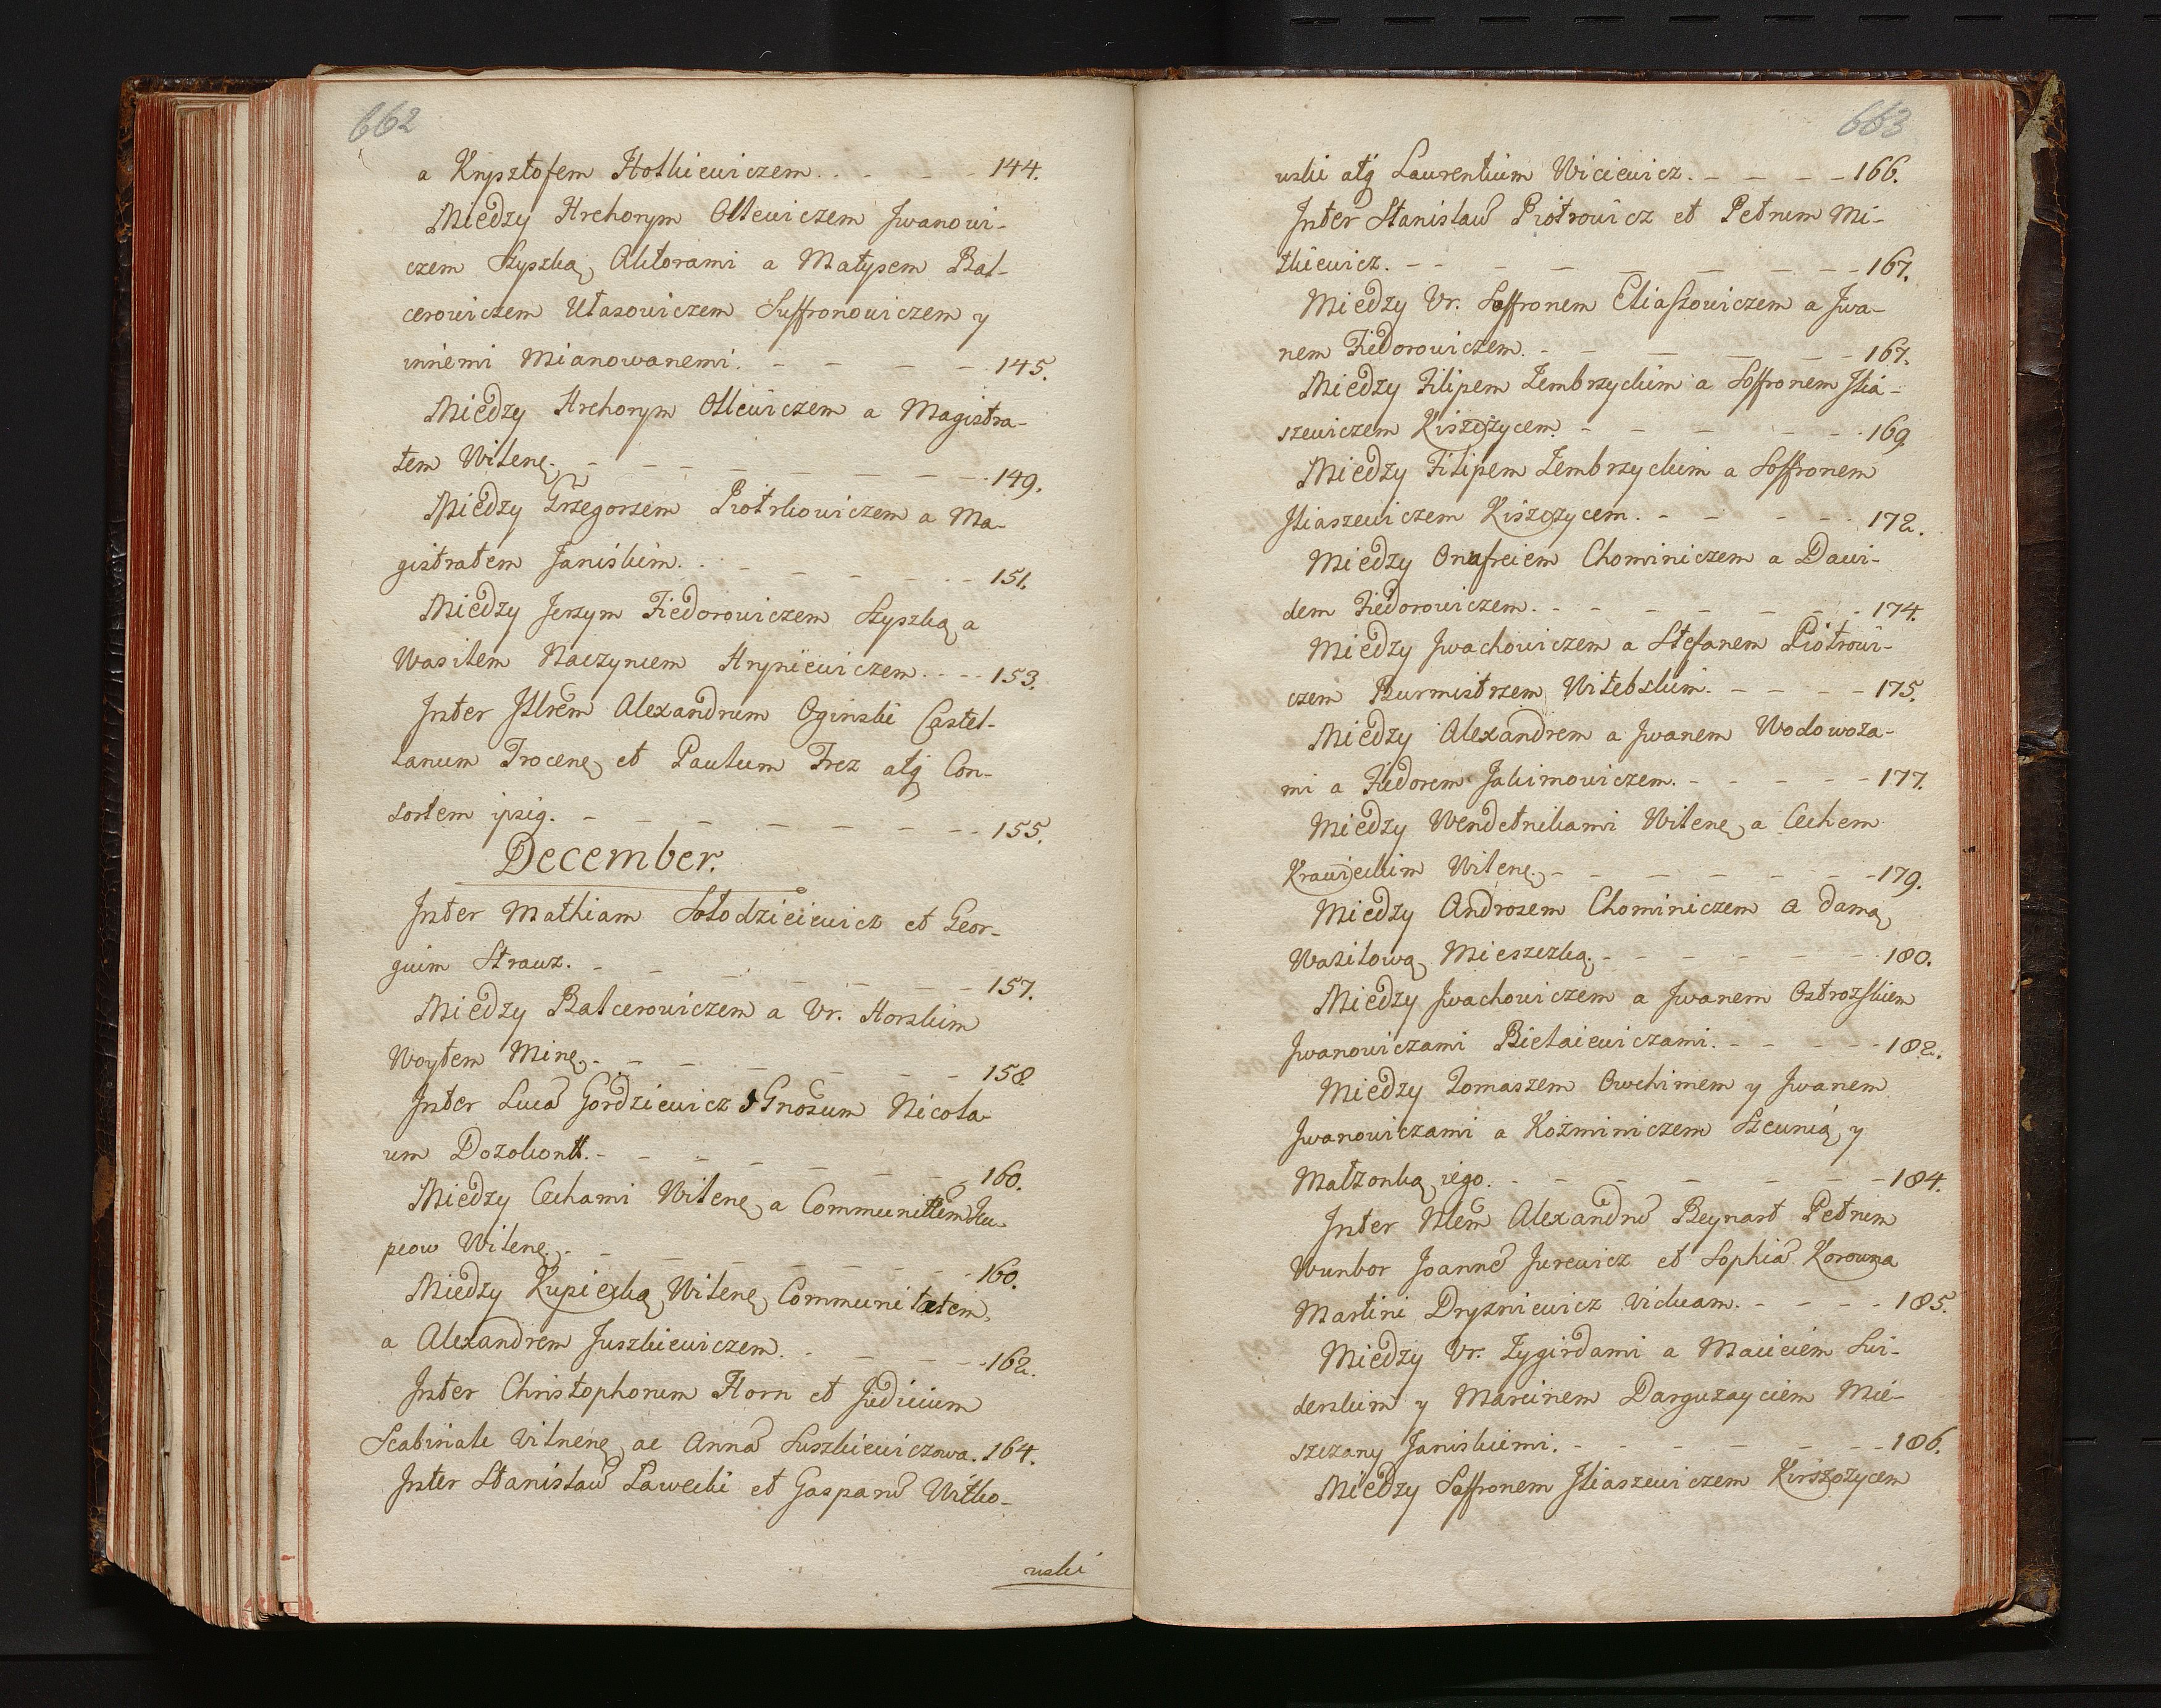 662
a Krysztofem Hotkiewiczem. - - - 144.
Między Hrehorym Ollewiczem Jwanowi-
czem Szyszką, Aktorami a Matysem Bal-
cerowiczem Utasowiczem Suffronowiczem y
innemi Mianowanemi. - - - - 145.
Między Hrehorym Ollewiczem a Magistra-
tem Wilenę. - - - - - - - - 149.
Między Grzegorzem Piotrkowiczem a Ma-
gistratem Janiskim. - - - - - - 151.
Między Jerzym Fiedorowiczem Szyszką a
Wasilem Naczyncem Hryniewiczem. - - - 153.
Jnter Jllrem Alexandrum Oginski Castel-
lanum Trocenę, et Paulum Frez atq Con-
sortem ipsig. - - - - - - - - 155.
December.
Jnter Mathiam Sołodzieiewicz et Geor-
guim Strauz. - - - - - - 157.
Między Balcerowiczem a Ur. Horskim
Woytem Minę. - - - - - - 158.
Jnter Luca Gordziewicz & Gnosum Nicola-
um Dozokontt. - - - - - - 160.
Między Cechami Wilenę a Communittem Ku-
pcow Wilenę. - - - - - - 160.
Między Kupiecką Wilenę, Communitatem,
a Alexandrem Juszkiewiczem. - - - - 162.
Jnter Christophorum Horn et Judicium
Scabinale Vilnenę, ac Anna Suszkiewiczowa. 164.
Jnter Stanisław Ławecki et Gaspard Witko-
wski
663
wski atq Laurentium Wiciewicz. - - - - 166.
Jnter Stanisław Piotrowicz et Petrum Mi-
tkiewicz. - - - - - - - - 167.
Między Ur. Soffronem Eliaszowiczem a Jwa-
nem Fiedorowiczem. - - - - - 167.
Między Filipem Zembrzyckim a Soffronem Jlia-
szewiczem Kiszczycem. - - - - - 169.
Między Filipem Zembrzyckim a Soffronem
Jliaszewiczem Kiszczycem. - - - - 172.
Między Onufreiem Chominiczem a Dawi-
dem Fiedorowiczem. - - - - - - 174.
Między Jwachowiczem a Stefanem Piotrowi-
czem Burmistrzem Witebskim. - - - - 175.
Między Alexandrem a Jwanem Wodowoza-
mi a Fiedorem Jakimowiczem. - - - - - 177.
Między Wendetnikami Wilenę, a Cechem
Krawieckim Wilenę. - - - - - - 179.
Między Androsem Chominiczem a Damą
Wasilową, Mieszczką. - - - - - - 180.
Między Jwachowiczem a Jwanem Ostroszkiem
Jwanowiczami Bielaiewiczami. - - - - 182.
Między Tomaszem Owchimem y Jwanem
Jwanowiczami a Koźminiczem Szeunią, y
Małzonką, iego. - - - - - - - 184.
Jnter Nlem Alexandrũ Reynart Petrum
Wunbor Joanne Jurewicz et Sophia Korowna
Martini Dryzniewicz Viduam. - - - - 185.
Między Ur. Zygirdami a Macieiem Swi-
derskim y Marcinem Darguzayciem Mie-
szczany Janiskimi. - - - - - - 186.
Między Soffronem Jliaszewiczem Kirszczycem